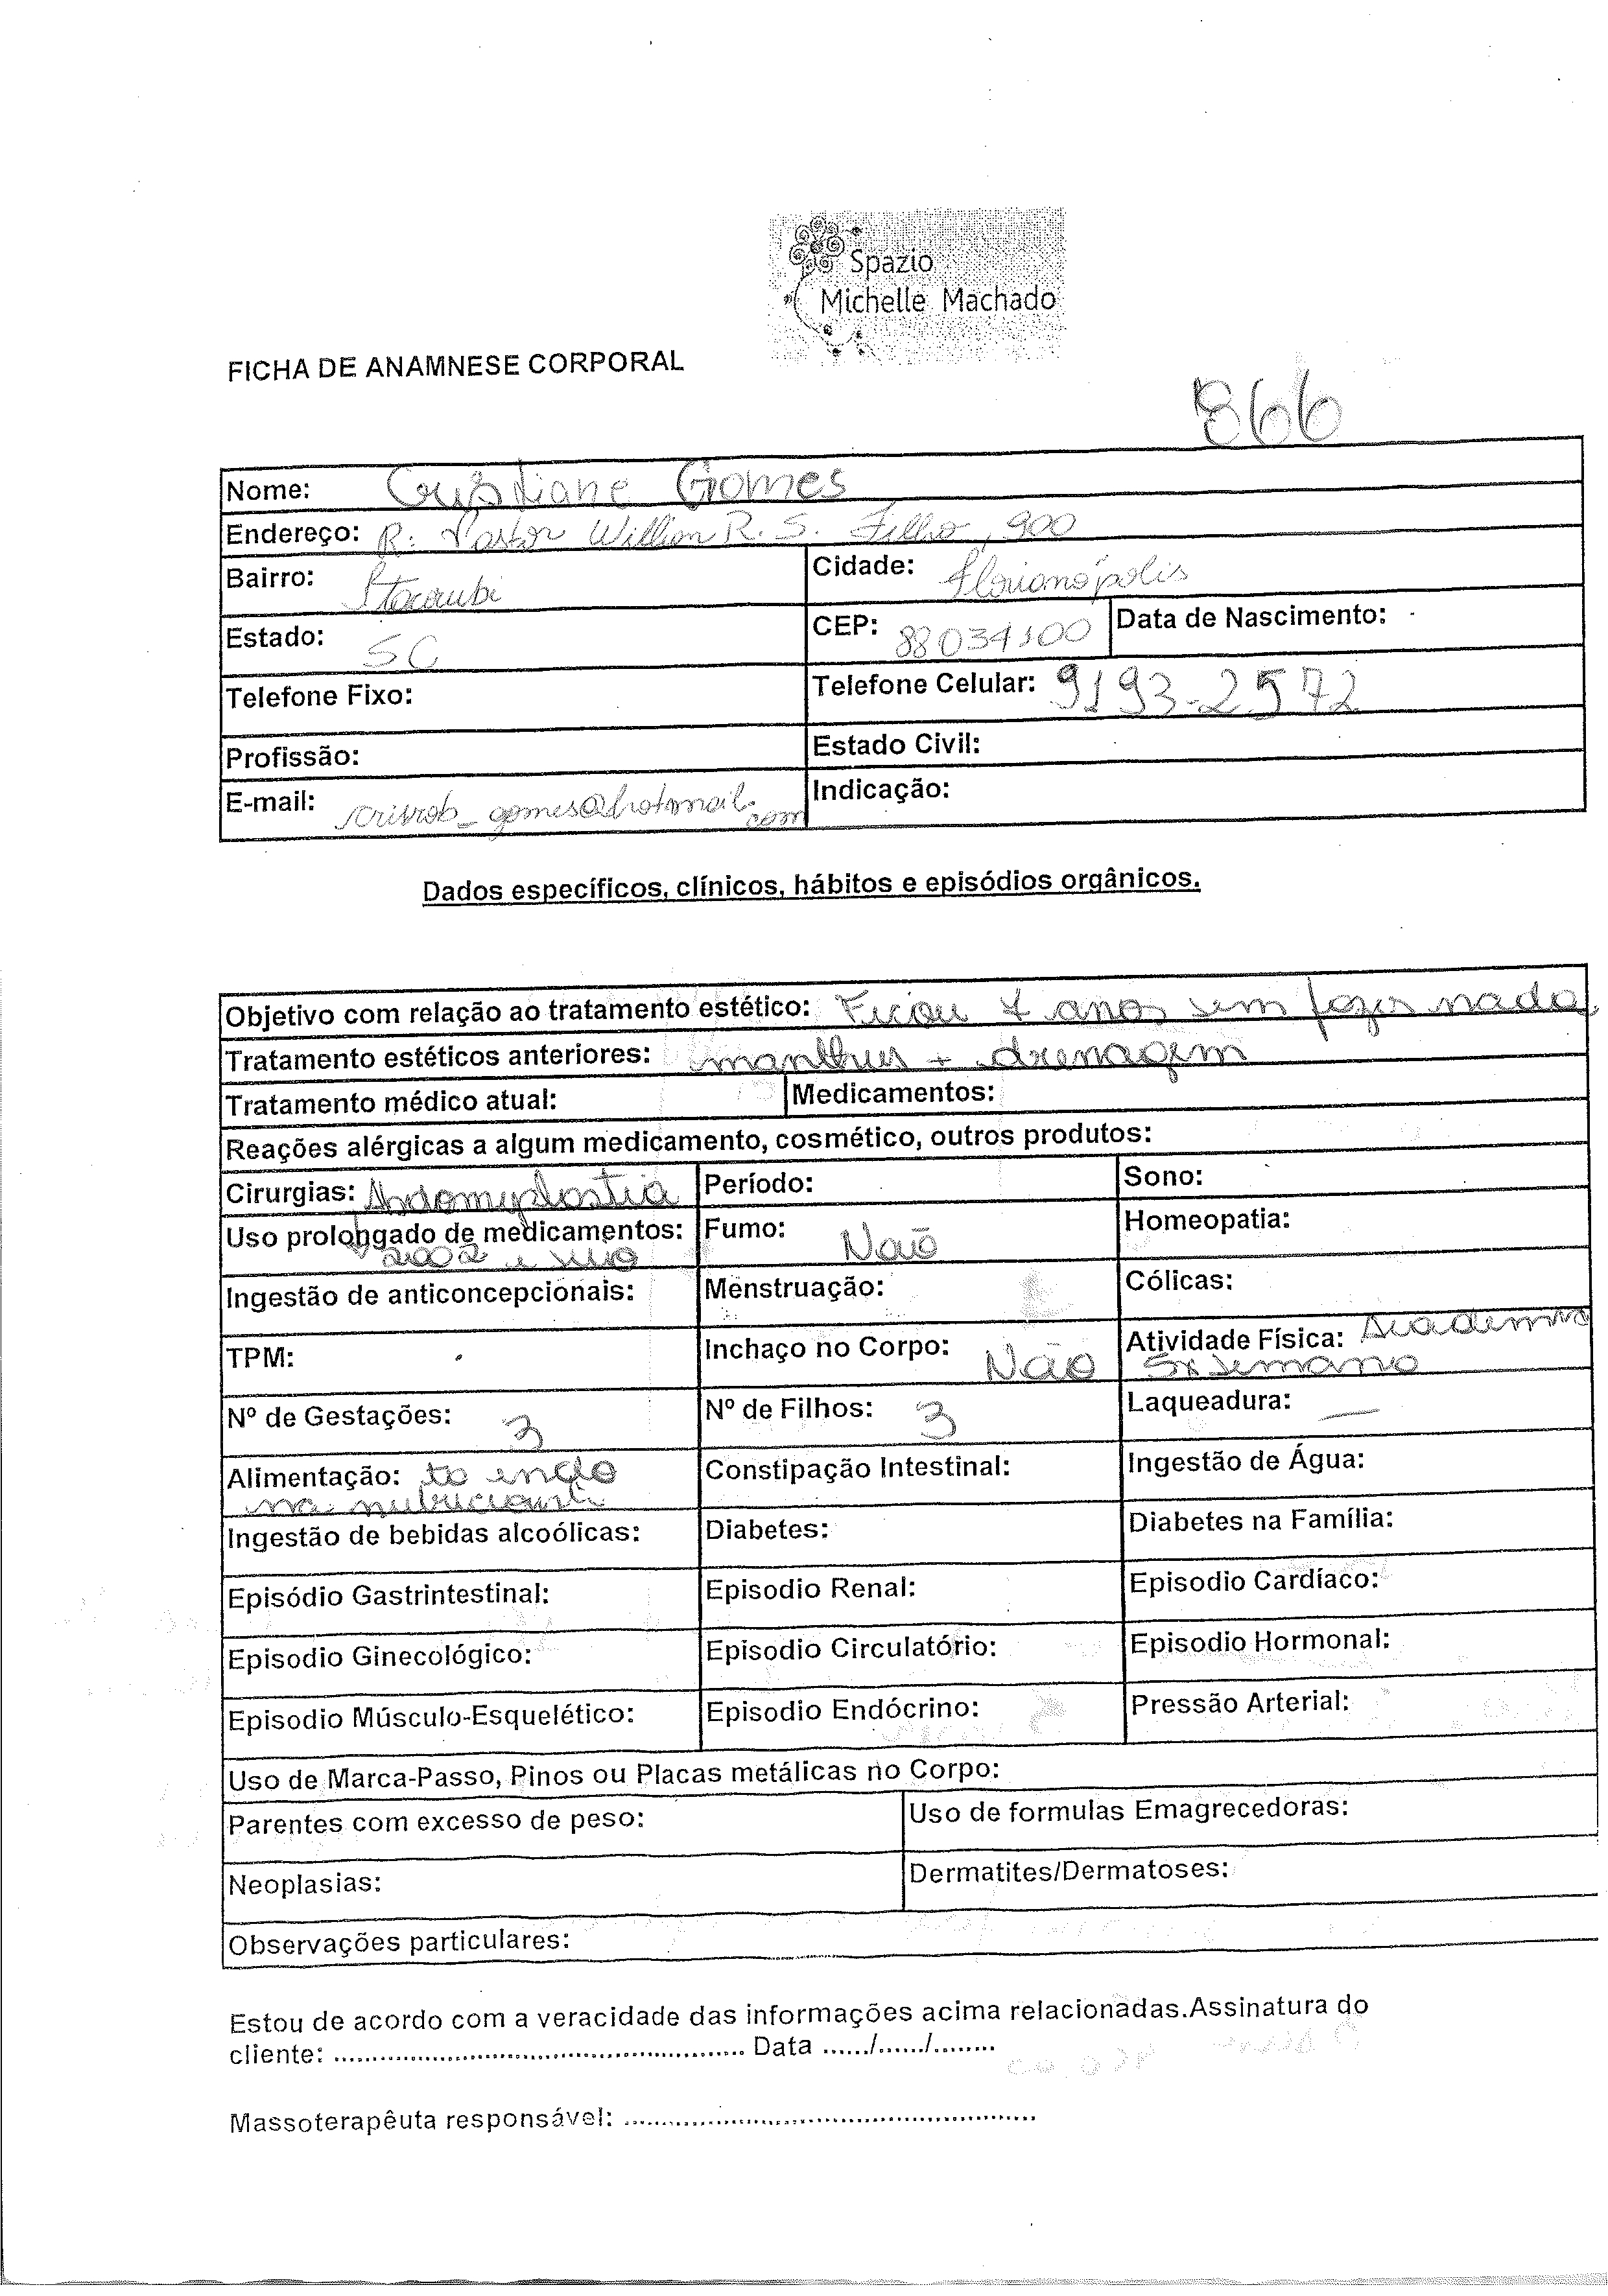 Spazio
Michelle Machado
FICHA DE ANAMNESE CORPORAL
866
Nome: Cristiane Gomes
Endereço: R: Pastor Willian R. S. Filho, 900
Bairro: Itacorubi Cidade: Florianópolis
Estado: SC CEP: 88034100 Data de Nascimento:
Telefone Fixo: Telefone Celular: 9193-2572
Profissão: Estado Civil:
E-mail: gomes@hotmail.com Indicação:
Dados específicos, clínicos, hábitos e episódios orgânicos.
Objetivo com relação ao tratamento estético: Ficou 7 anos sem fazer nada
Tratamento estéticos anteriores: manthus + drenagem
Tratamento médico atual: Medicamentos:
Reações alérgicas a algum medicamento, cosmético, outros produtos:
Cirurgias: Período: Sono:
Uso prolongado de medicamentos: Fumo: Não Homeopatia:
2002 e
Ingestão de anticoncepcionais: Menstruação: Cólicas:
TPM: Inchaço no Corpo: Não Atividade Física: Academia
5x semana
Nº de Gestações: 3 Nº de Filhos: 3 Laqueadura: —
Alimentação: to indo Constipação Intestinal: Ingestão de Água:
na
Ingestão de bebidas alcoólicas: Diabetes: Diabetes na Família:
Episódio Gastrintestinal: Episodio Renal: Episodio Cardíaco:
Episodio Ginecológico: Episodio Circulatório: Episodio Hormonal:
Episodio Músculo-Esquelético: Episodio Endócrino: Pressão Arterial:
Uso de Marca-Passo, Pinos ou Placas metálicas no Corpo:
Parentes com excesso de peso: Uso de formulas Emagrecedoras:
Neoplasias: Dermatites/Dermatoses:
Observações particulares:
Estou de acordo com a veracidade das informações acima relacionadas.Assinatura do
cliente: ...................................................... Data ....../....../........
Massoterapêuta responsável: ......................................................